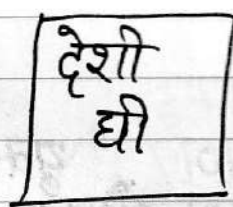 देशी
घी